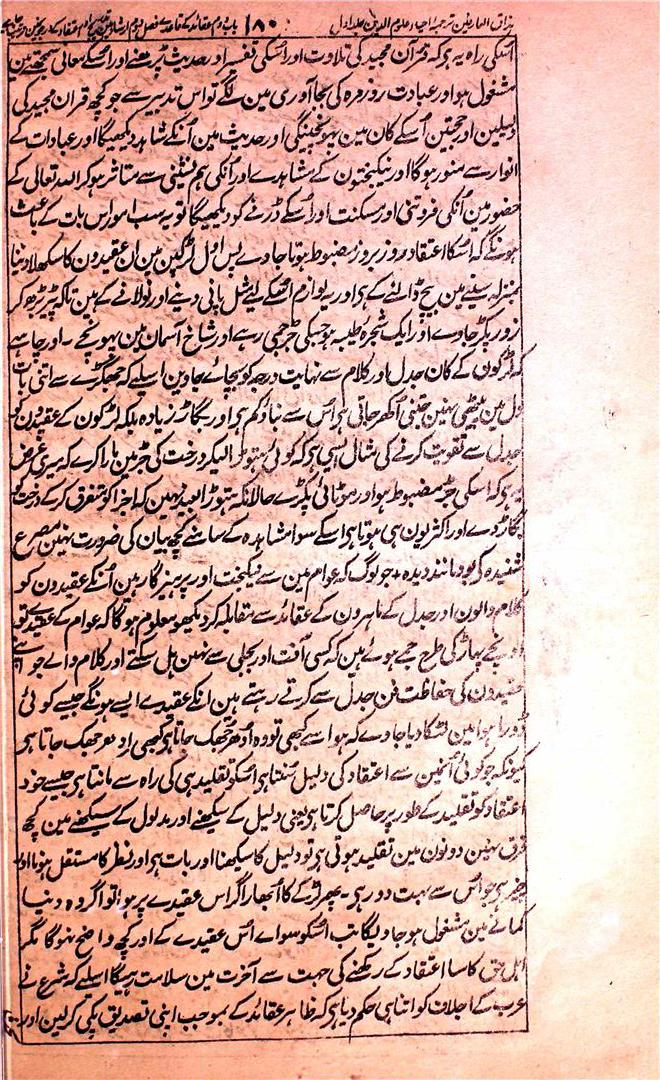 مذاق العارفین ترجمہ احیاء علوم الدین جلد اول ۱۸۰ باب دوم عقائد کے قاعدے فصل دوم ارشاد میں
اسکی راہ یہ ہی کہ قرآن مجید کی تلاوت اور اسکی تفسیر اور حدیث پڑھنے اور اسکے معانی سمجھنے مین
مشغول ہو اور عبادت روزمرہ کی بجا آوری مین لگے تو اس تدبیر سے جو کچھ قرآن مجید کی
دلیلین اور حجتین اُسکے کان مین پہونچینگی اور حدیث مین اُنکے شاہد دیکھیگا اور عبادات کے
انوار سے منور ہوگا اور نیکبختون کے مشاہدے اور اُنکی ہم نشینی سے متاثر ہوکر اللہ تعالی کے
حضور مین اُنکی فروتنی اور مسکنت اور اُسکے ڈرنے کو دیکھیگا تو یہ سب امور اس بات کے باعث
ہونگے کہ اُسکا اعتقاد روز بروز مضبوط ہوتا جاوے پس اول لڑکپن مین ان عقیدون کا سکھلا دینا
بمنزلہ سینے مین بیج ڈالنے کے ہی اور یہ لوازم اُسکے لیے مثل پانی دینے اور نولانے کے ہین تاکہ بیج بڑھ کر
زور پکڑ جاوے اور ایک شجرۂ طیبہ ہو جسکی جڑ جمی رہے اور شاخ آسمان مین پہونچے ۔ اور چاہیے
کہ لڑکون کے کان جدل اور کلام سے نہایت درجہ کو بچائے جاوین اسلیے کہ جھگڑے سے اتنی بات
دل مین بیٹھی نہین جتنی اُکھڑ جاتی ہی اُس سے بناؤ کم ہی اور بگاڑ زیادہ بلکہ لڑکون کے عقیدون کو
جدل سے تقویت کرنے کی مثال ایسی ہی کہ کوئی ہتوڑا لیکر درخت کی جڑ مین مارا کرے کہ میری غرض
یہ ہی کہ اسکی جڑ مضبوط ہو اور موٹائی پکڑے حالانکہ ہتوڑا بعید نہین کہ اجزا کو متفرق کرکے درخت کو
بگاڑ دے اور اکثر یون ہی ہوتا ہی اسکے سوا مشاہدہ کے سامنے کچھ بیان کی ضرورت نہین مصرع
شنیدہ کی بود مانند دیدہ + جو لوگ کہ عوام مین سے نیکبخت اور پرہیزگار ہین اُنکے عقیدون کو
کلام والون اور جدل کے ماہرون کے عقائد سے مقابلہ کر دیکھو معلوم ہوگا کہ عوام کے عقیدے تو
اونچے پہاڑ کی طرح جمے ہوئے ہین کہ کسی آفت اور بجلی سے نہین ہل سکتے اور کلام والے جو اپنے
عقیدون کی حفاظت فن جدل سے کرتے رہتے ہین انکے عقیدے ایسے ہونگے جیسے کوئی
ڈورا ہوا مین لٹکا دیا جاوے کہ ہوا سے کبھی تو وہ اُدھر جھک جاتا ہی کبھی اِدھر جھک جاتا ہی
کیونکہ جو کوئی اُنمین سے اعتقاد کی دلیل سنتا ہی اسکو تقلید ہی کی راہ سے مانتا ہی جیسے خود
اعتقاد کو تقلید کے طور پر حاصل کرتا ہی یعنی دلیل کے سیکھنے اور مدلول کے سیکھنے مین کچھ
فرق نہین دونون مین تقلید ہوتی ہی تو دلیل کا سیکھنا اور بات ہی اور نظر کا مستقل ہونا اور
چیز ہی جو اُس سے بہت دور ہی ۔ پھر لڑکے کا اُبھار اگر اس عقیدے پر ہوا تو اگر وہ دنیا
کمانے مین مشغول ہو جاویگا تب اسکو سواے اس عقیدے کے اور کچھ واضح نہوگا مگر
اہل حق کا سا اعتقاد کے رکھنے کی جہت سے آخرت مین سلامت رہیگا اسلیے کہ شرع نے
عرب کے اجلاف کو اتنا ہی حکم دیا ہی کہ ظاہر عقائد کے بموجب اپنی تصدیق پکی کرلین اور